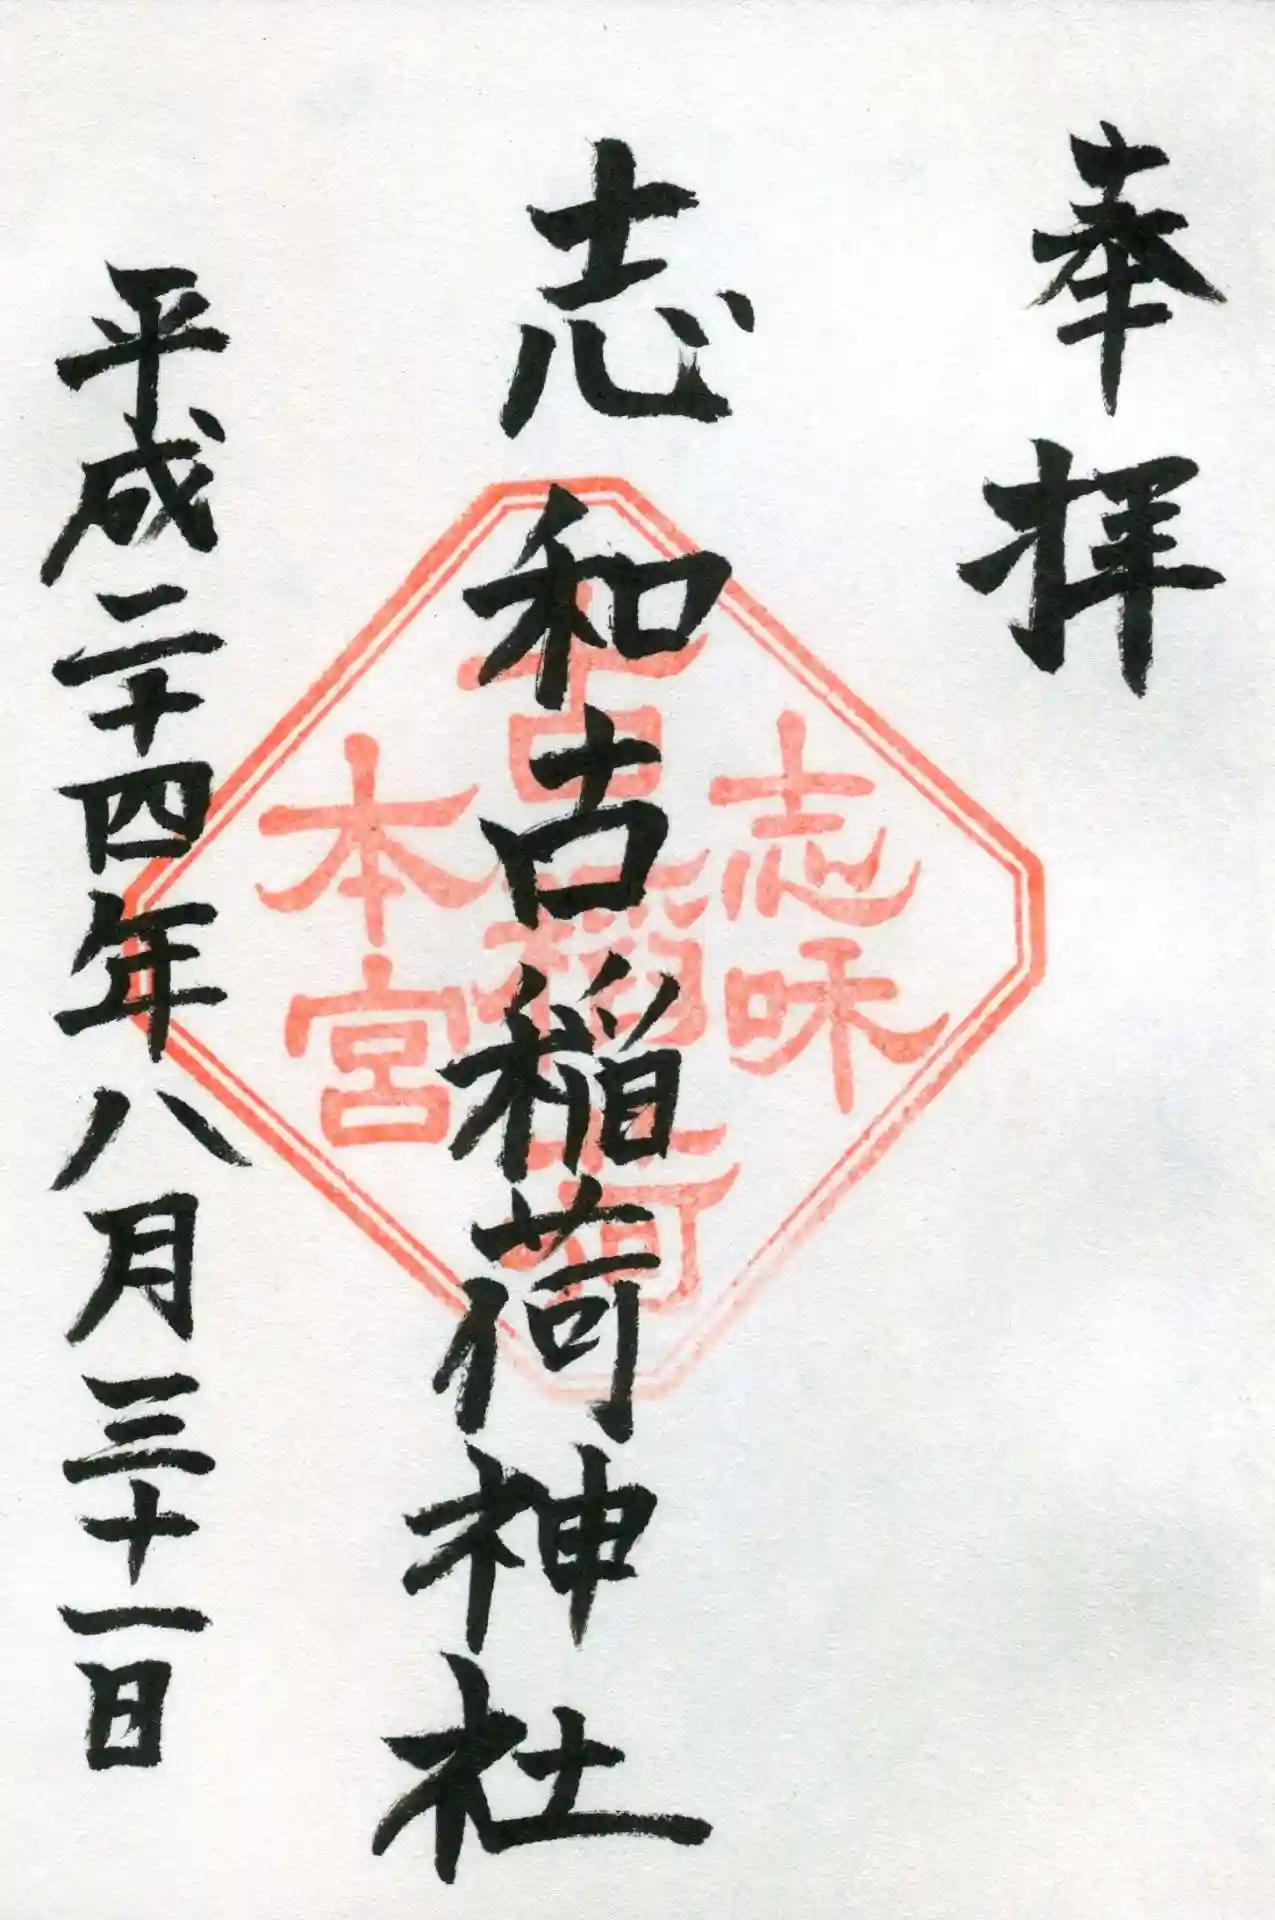 奉拝
志和古稲荷神社
志味
古稲荷
本宮
平成二十四年八月三十一日